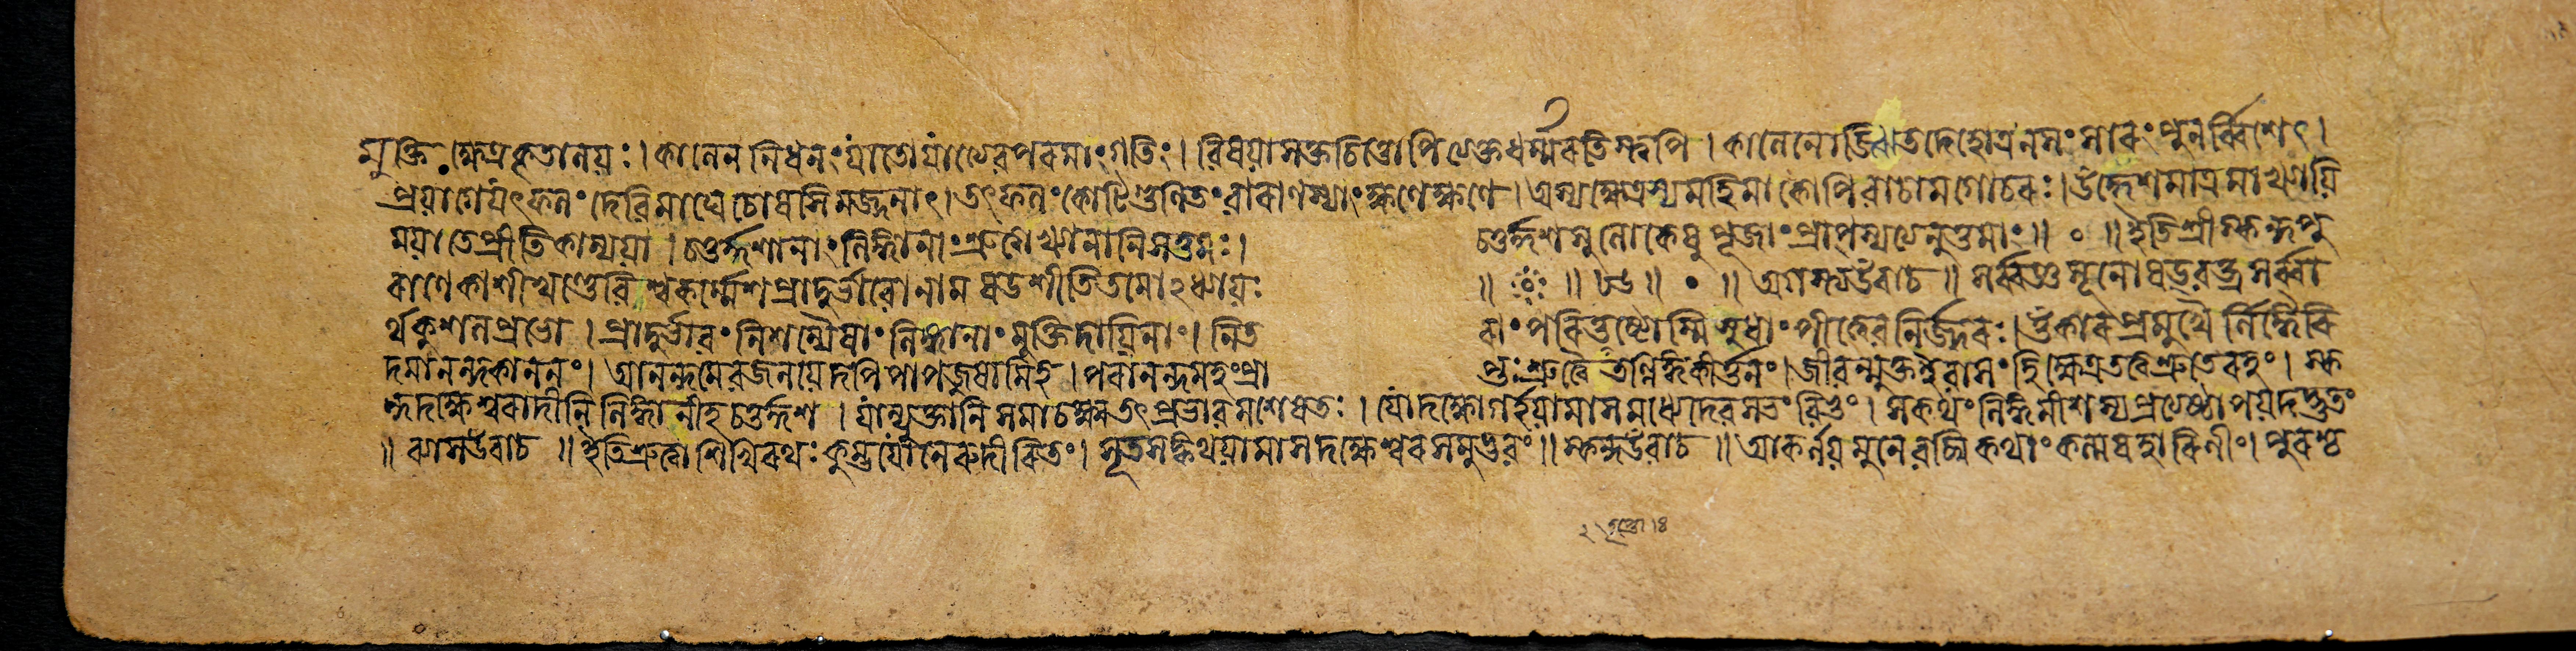 মুক্তিঃ ক্ষেত্রকৃতালয়ঃ। কালেন নিধনং যাতো যাত্যেব পরমাং গতিং। বিষয়াসক্তচিত্তোপি ত্যক্তধর্ম্মরতিস্ত্বপি। কালেনোজ্ঝিতদেহোত্র ন সংসারং পুনর্ব্বিশেৎ।
প্রয়াগে যৎফলং দেবি মাঘে চোষসি মজ্জনাৎ। তৎফলং কোটিগুণিতং বারাণস্যাং ক্ষণেক্ষণে। অস্য ক্ষেত্রস্য মহিমা কোপি বাচামগোচরঃ। উদ্দেশমাত্রমাখ্যায়ি
ময়া তে প্রীতিকাম্যয়া। চতুর্দ্দশানাং লিঙ্গানাং শ্রুত্বাখ্যানানি সত্তমঃ। চতুর্দ্দশসু লোকেষু পূজাং প্রাপ্স্যত্যনুত্তমাং॥ ॰ ॥ ইতি শ্রীস্কন্দপু
রাণে কাশীখণ্ডে বিশ্বকর্ম্মেশপ্রাদুর্ভাবো নাম ষডশীতিতমোঽধ্যায়ঃ ॥ ॰ ॥ ৮৬ ॥ ॰ ॥ অগস্ত্য উবাচ ॥ সর্ব্বজ্ঞসূনো ষড্বক্ত্র সর্ব্বা
র্থকুশল প্রভো। প্রাদুর্ভাবং নিশম্যৈষাং লিঙ্গানাং মুক্তিদায়িনাং। নিত রাং পরিতৃপ্তোস্মি সুধাং পীত্বেব নির্জ্জরঃ। ওঁকারপ্রমুখৈর্লিঙ্গৈরি
দমানন্দকাননং। আনন্দমেব জনয়েদপি পাপজুষামিহ। পরানন্দমহং প্রা প্তঃ শ্রুত্বৈতল্লিঙ্গকীর্ত্তনং। জীবন্মুক্ত ইবাসং হি ক্ষেত্রতত্ত্বশ্রুতেরহং। স্ক
ন্দ দক্ষেশ্বরাদীনি লিঙ্গানীহ চতুর্দ্দশ। যান্যুক্তানি সমাচক্ষ্ব তৎপ্রভাবমশেষতঃ। যো দক্ষো গর্হয়ামাস মধ্যে দেবসভং বিভুং। স কথং লিঙ্গমীশস্য প্রত্যষ্ঠাপয়দদ্ভুতং
॥ ব্যাস উবাচ ॥ ইতি শ্রুত্বা শিখিরথঃ কুম্ভযোনেরুদীরিতং। সূত সঙ্কথয়ামাস দক্ষেশ্বরসমুদ্ভবং॥ স্কন্দ উবাচ ॥ আকর্ণয় মুনে বচ্মি কথাং কল্মষহারিণীং। পুরশ্চ